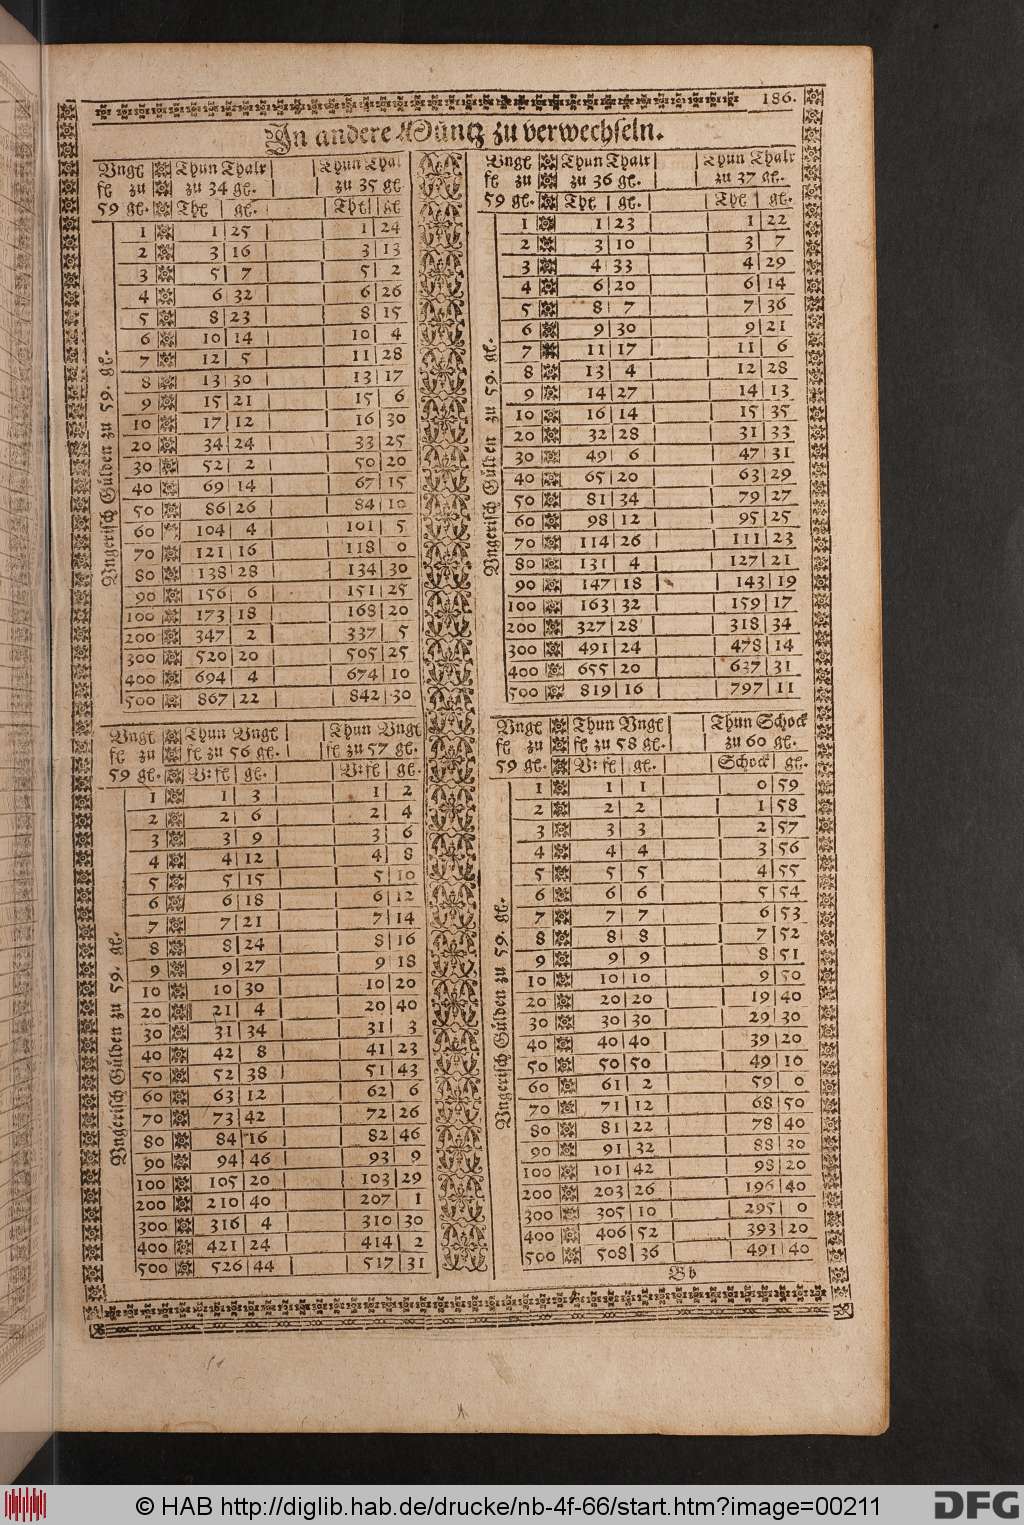 186.
In andere Müntz zu verwechseln.
Vngl Thun Thalr Thun Thal
fl zu zu 34 gl. zu 35 gl
59 gl. Thl gl. Thl gl
Vngerisch Gülden zu 59. gl.
1 1 25 1 24
2 3 16 3 13
3 5 7 5 2
4 6 32 6 26
5 8 23 8 15
6 10 14 10 4
7 12 5 11 28
8 13 30 13 17
9 15 21 15 6
10 17 12 16 30
20 34 24 33 25
30 52 2 50 20
40 69 14 67 15
50 86 26 84 10
60 104 4 101 5
70 121 16 118 0
80 138 28 134 30
90 156 6 151 25
100 173 18 168 20
200 347 2 337 5
300 520 20 505 25
400 694 4 674 10
500 867 22 842 30
Vngl Thun Thalr Thun Thalr
fl zu zu 36 gl. zu 37 gl.
59 gl. Thl gl. Thl gl.
Vngerisch Gülden zu 59. gl.
1 1 23 1 22
2 3 10 3 7
3 4 33 4 29
4 6 20 6 14
5 8 7 7 36
6 9 30 9 21
7 11 17 11 6
8 13 4 12 28
9 14 27 14 13
10 16 14 15 35
20 32 28 31 33
30 49 6 47 31
40 65 20 63 29
50 81 34 79 27
60 98 12 95 25
70 114 26 111 23
80 131 4 127 21
90 147 18 143 19
100 163 32 159 17
200 327 28 318 34
300 491 24 478 14
400 655 20 637 31
500 819 16 797 11
Vngl Thun Vngl Thun Vngl
fl zu fl zu 56 gl. fl zu 57 gl.
59 gl. V: fl gl. V: fl gl.
Vngerisch Gülden zu 59. gl.
1 1 3 1 2
2 2 6 2 4
3 3 9 3 6
4 4 12 4 8
5 5 15 5 10
6 6 18 6 12
7 7 21 7 14
8 8 24 8 16
9 9 27 9 18
10 10 30 10 20
20 21 4 20 40
30 31 34 31 3
40 42 8 41 23
50 52 38 51 43
60 63 12 62 6
70 73 42 72 26
80 84 16 82 46
90 94 46 93 9
100 105 20 103 29
200 210 40 207 1
300 316 4 310 30
400 421 24 414 2
500 526 44 517 31
Vngl Thun Vngl Thun Schock
fl zu fl zu 58 gl. zu 60 gl.
59 gl. V: fl gl. Schock gl.
Vngerisch Gülden zu 59. gl.
1 1 1 0 59
2 2 2 1 58
3 3 3 2 57
4 4 4 3 56
5 5 5 4 55
6 6 6 5 54
7 7 7 6 53
8 8 8 7 52
9 9 9 8 51
10 10 10 9 50
20 20 20 19 40
30 30 30 29 30
40 40 40 39 20
50 50 50 49 10
60 61 2 59 0
70 71 12 68 50
80 81 22 78 40
90 91 32 88 30
100 101 42 98 20
200 203 26 196 40
300 305 10 295 0
400 406 52 393 20
500 508 36 491 40
Bb
© HAB http://diglib.hab.de/drucke/nb-4f-66/start.htm?image=00211
DFG